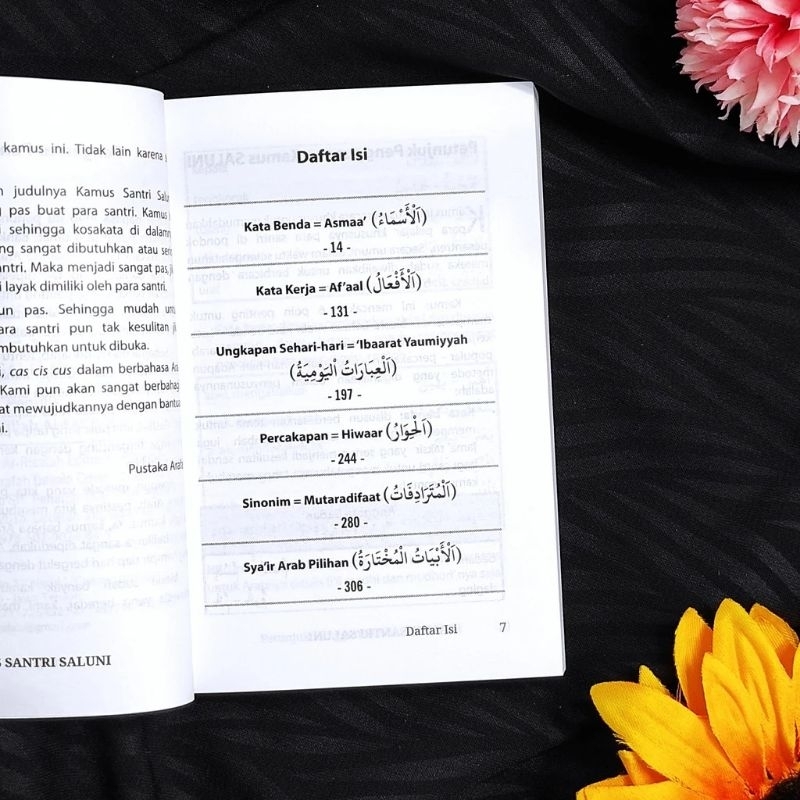 kamus ini. Tidak lain karena
judulnya Kamus Santri
pas buat para santri. Kamus
sehingga kosakata di dalamn
ng sangat dibutuhkan atau
antri. Maka menjadi sangat pas,
i layak dimiliki oleh para santri.
un pas. Sehingga mudah
ara santri pun tak kesulitan
mbutuhkan untuk dibuka.
i, cas cis cus dalam berbahasa
Kami pun akan sangat berbahag
at mewujudkannya dengan bantua
ni.
Pustaka Arab
SANTRI SALUNI
Daftar Isi
Kata Benda = Asmaa' (اَلْأَسْمَاءُ)
- 14 -
Kata Kerja = Af'aal (اَلْأَفْعَالُ)
- 131 -
Ungkapan Sehari-hari = 'Ibaarat Yaumiyyah
(اَلْعِبَارَاتُ الْيَوْمِيَةُ)
- 197 -
Percakapan = Hiwaar (اَلْحِوَارُ)
- 244 -
Sinonim = Mutaradifaat (اَلْمُتَرَادِفَاتُ)
- 280 -
Sya'ir Arab Pilihan (اَلْأَبْيَاتُ الْمُخْتَارَةُ)
- 306 -
Daftar Isi 7